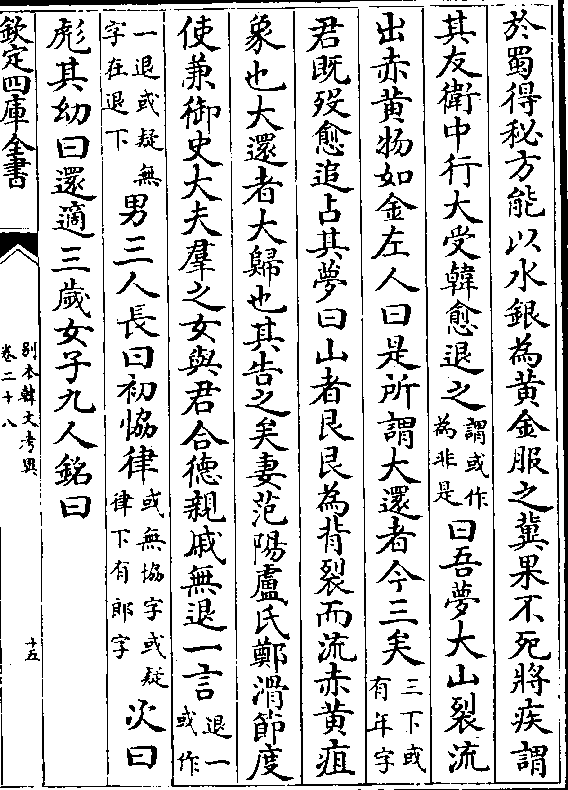 於蜀得秘方能以水銀為黃金服之冀果不死將疾謂
其友衛中行大受韓愈退之謂或作為非是曰吾夢大山裂流
出赤黃物如金左人曰是所謂大還者今三矣三下或有年字
君既歿愈追占其夢曰山者艮艮為背裂而流赤黃疽
象也大還者大歸也其告之矣妻范陽盧氏鄭滑節度
使兼御史大夫羣之女與君合德親戚無退一言退一或作
一退或疑無字在退下男三人長曰初協律或無協字或疑律下有郎字次曰
彪其幼曰還適三歲女子九人銘曰
欽定四庫全書
別本韓文考異
卷二十八
十五